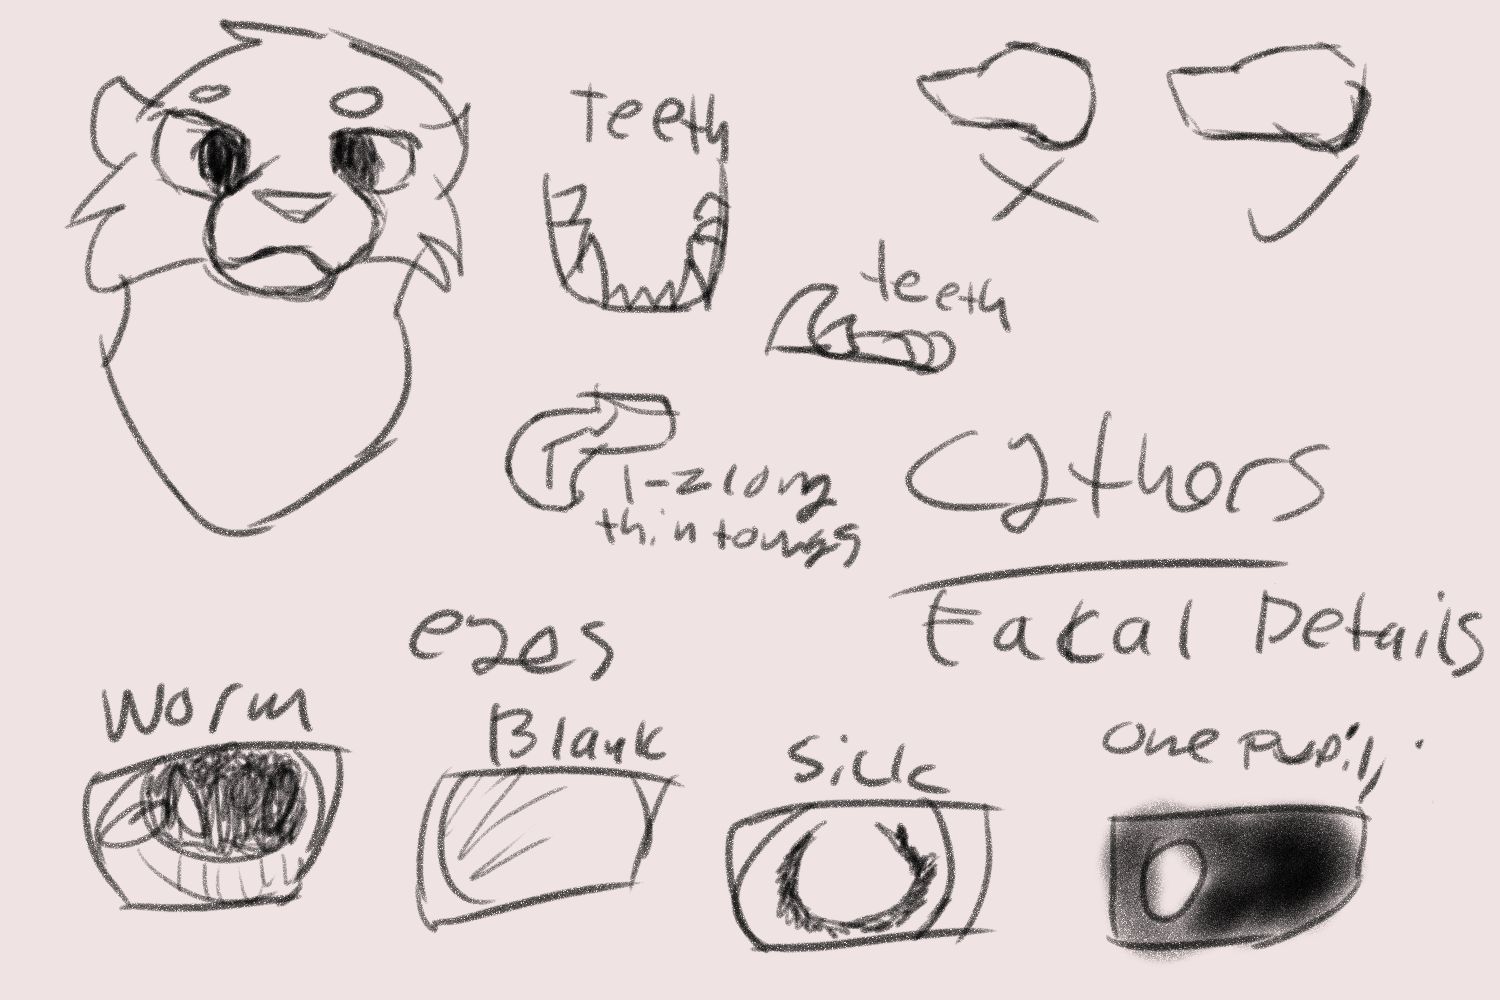 Teeth
teeth
1-2 long
thin toungs
Cythors
Eakal Details
eyes
Worm
Blank
Sick
one pupil